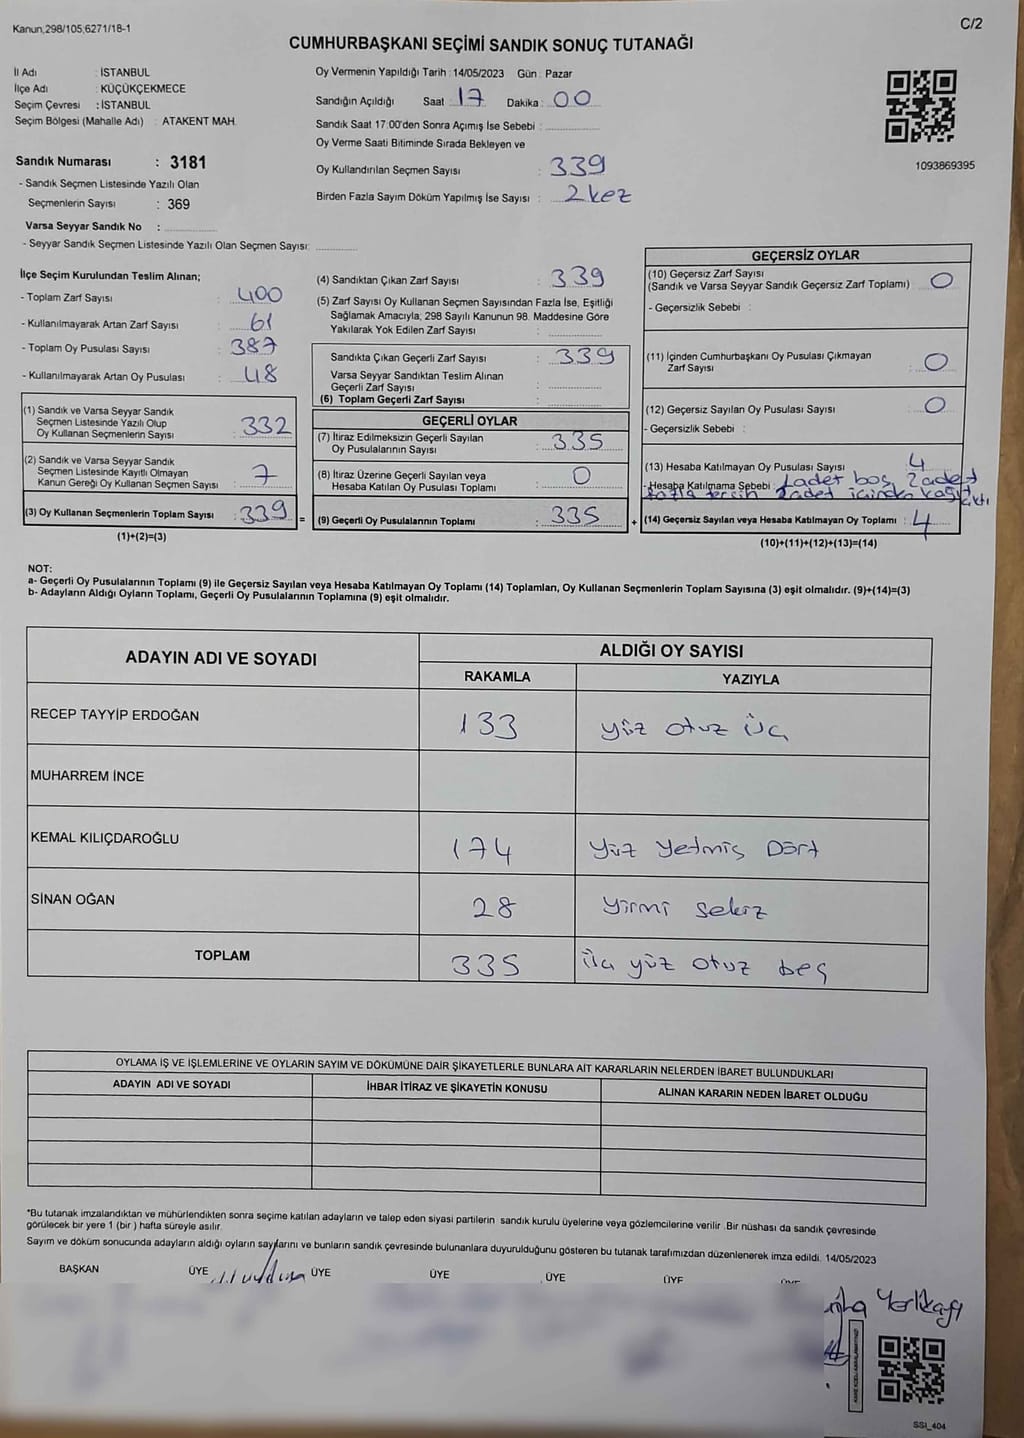 Kanun,298/105,6271/18-1
C/2
CUMHURBAŞKANI SEÇİMİ SANDIK SONUÇ TUTANAĞI
İl Adı : İSTANBUL
İlçe Adı : KÜÇÜKÇEKMECE
Seçim Çevresi : İSTANBUL
Seçim Bölgesi (Mahalle Adı) : ATAKENT MAH.
Sandık Numarası : 3181
- Sandık Seçmen Listesinde Yazılı Olan
Seçmenlerin Sayısı : 369
Varsa Seyyar Sandık No :
- Seyyar Sandık Seçmen Listesinde Yazılı Olan Seçmen Sayısı:
Oy Vermenin Yapıldığı Tarih : 14/05/2023 Gün : Pazar
Sandığın Açıldığı Saat : 17 Dakika : 00
Sandık Saat 17:00'den Sonra Açımış İse Sebebi :
Oy Verme Saati Bitiminde Sırada Bekleyen ve
Oy Kullandırılan Seçmen Sayısı : 339
Birden Fazla Sayım Döküm Yapılmış İse Sayısı : 2 kez
1093869395
İlçe Seçim Kurulundan Teslim Alınan;
- Toplam Zarf Sayısı : 400
- Kullanılmayarak Artan Zarf Sayısı : 61
- Toplam Oy Pusulası Sayısı : 387
- Kullanılmayarak Artan Oy Pusulası : 48
(1) Sandık ve Varsa Seyyar Sandık
Seçmen Listesinde Yazılı Olup
Oy Kullanan Seçmenlerin Sayısı : 332
(2) Sandık ve Varsa Seyyar Sandık
Seçmen Listesinde Kayıtlı Olmayan
Kanun Gereği Oy Kullanan Seçmen Sayısı : 7
(3) Oy Kullanan Seçmenlerin Toplam Sayısı : 339 =
(1)+(2)=(3)
(4) Sandıktan Çıkan Zarf Sayısı : 339
(5) Zarf Sayısı Oy Kullanan Seçmen Sayısından Fazla İse, Eşitliği
Sağlamak Amacıyla; 298 Sayılı Kanunun 98. Maddesine Göre
Yakılarak Yok Edilen Zarf Sayısı :
Sandıkta Çıkan Geçerli Zarf Sayısı : 339
Varsa Seyyar Sandıktan Teslim Alınan
Geçerli Zarf Sayısı :
(6) Toplam Geçerli Zarf Sayısı :
GEÇERLİ OYLAR
(7) İtiraz Edilmeksizin Geçerli Sayılan
Oy Pusulasının Sayısı : 335
(8) İtiraz Üzerine Geçerli Sayılan veya
Hesaba Katılan Oy Pusulası Toplamı : 0
(9) Geçerli Oy Pusulalarının Toplamı : 335 +
GEÇERSİZ OYLAR
(10) Geçersiz Zarf Sayısı
(Sandık ve Varsa Seyyar Sandık Geçersiz Zarf Toplamı) : 0
- Geçersizlik Sebebi :
(11) İçinden Cumhurbaşkanı Oy Pusulası Çıkmayan
Zarf Sayısı : 0
(12) Geçersiz Sayılan Oy Pusulası Sayısı : 0
- Geçersizlik Sebebi :
(13) Hesaba Katılmayan Oy Pusulası Sayısı : 4
- Hesaba Katılmama Sebebi : 1 adet boş 2 adet
fazla tercih 2 adet içinden kağıt
çıktı
(14) Geçersiz Sayılan veya Hesaba Katılmayan Oy Toplamı : 4
(10)+(11)+(12)+(13)=(14)
NOT:
a- Geçerli Oy Pusulalarının Toplamı (9) ile Geçersiz Sayılan veya Hesaba Katılmayan Oy Toplamı (14) Toplamları, Oy Kullanan Seçmenlerin Toplam Sayısına (3) eşit olmalıdır. (9)+(14)=(3)
b- Adayların Aldığı Oyların Toplamı, Geçerli Oy Pusulalarının Toplamına (9) eşit olmalıdır.
ADAYIN ADI VE SOYADI ALDIĞI OY SAYISI
RAKAMLA YAZIYLA
RECEP TAYYİP ERDOĞAN 133 yüz otuz üç
MUHARREM İNCE
KEMAL KILIÇDAROĞLU 174 yüz yetmiş Dört
SİNAN OĞAN 28 yirmi sekiz
TOPLAM 335 üç yüz otuz beş
OYLAMA İŞ VE İŞLEMLERİNE VE OYLARIN SAYIM VE DÖKÜMÜNE DAİR ŞİKAYETLERLE BUNLARA AİT KARARLARIN NELERDEN İBARET BULUNDUKLARI
ADAYIN ADI VE SOYADI İHBAR İTİRAZ VE ŞİKAYETİN KONUSU ALINAN KARARIN NEDEN İBARET OLDUĞU
*Bu tutanak imzalandıktan ve mühürlendikten sonra seçime katılan adayların ve talep eden siyasi partilerin sandık kurulu üyelerine veya gözlemcilerine verilir .Bir nüshası da sandık çevresinde
görülecek bir yere 1 (bir ) hafta süreyle asılır.
Sayım ve döküm sonucunda adayların aldığı oyların sayılarını ve bunların sandık çevresinde bulunanlara duyurulduğunu gösteren bu tutanak tarafımızdan düzenlenerek imza edildi. 14/05/2023
BAŞKAN ÜYE ÜYE ÜYE ÜYE ÜYE ÜYE
SSI_404